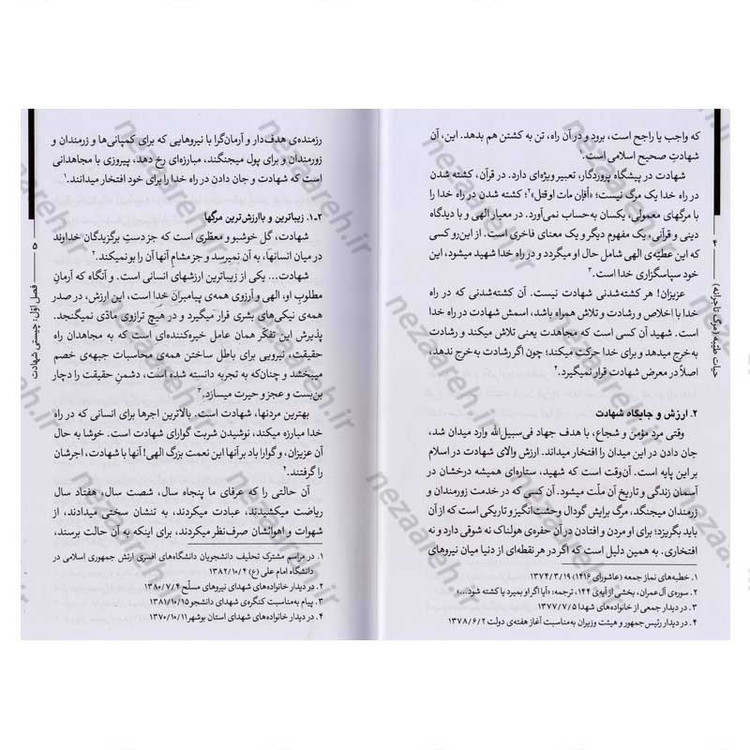 که واجب یا راجح است، برود و در آن راه، تن به کشتن هم بدهد. این، آن
شهادتِ صحیح اسلامی است.۱
شهادت در پیشگاه پروردگار، تعبیر ویژه‌ای دارد. در قرآن، کشته شدن
در راه خدا یک مرگ نیست؛ «أَفَإِن مات او قتل»۲؛ کشته شدن در راه خدا را
با مرگهای معمولی، یکسان به‌حساب نمی‌آورد. در معیار الهی و با دیدگاه
دینی و قرآنی، یک مفهوم دیگر و یک معنای فاخری است. از این‌رو کسی
که این عطیّه‌ی الهی شامل حال او میگردد و در راه خدا شهید میشود، این
خود سپاسگزاری خدا است.۳
عزیزان! هر کشته‌شدنی شهادت نیست. آن کشته‌شدنی که در راه
خدا با اخلاص و رشادت و تلاش همراه باشد، اسمش شهادت در راه خدا
است. شهید آن کسی است که مجاهدت یعنی تلاش میکند و رشادت
به‌خرج میدهد و برای خدا حرکت میکند؛ چون اگر رشادت به‌خرج ندهد،
اصلاً در معرض شهادت قرار نمیگیرد.۴
۲. ارزش و جایگاه شهادت
وقتی مرد مؤمن و شجاع، با هدف جهاد فی‌سبیل‌الله وارد میدان شد،
جان دادن در این میدان را افتخار میداند. ارزش والای شهادت در اسلام
بر این پایه است. آن‌وقت است که شهید، ستاره‌ای همیشه درخشان در
آسمان زندگی و تاریخ آن ملّت میشود. آن کسی که در خدمت زورمندان و
زرمندان میجنگد، مرگ برایش گودال وحشت‌انگیز و تاریکی است که از آن
باید بگریزد؛ برای او مردن و افتادن در آن حفره‌ی هولناک نه شوقی دارد و نه
افتخاری. به همین دلیل است که اگر در هر نقطه‌ای از دنیا میان نیروهای
۱. خطبه‌های نماز جمعه (عاشورای ۱۴۱۶) ۱۳۷۴/۳/۱۹
۲. سوره‌ی آل‌عمران، بخشی از آیه‌ی ۱۴۴، ترجمه: «آیا اگر او بمیرد یا کشته شود...»
۳. در دیدار جمعی از خانواده‌های شهدا ۱۳۷۷/۷/۵
۴. در دیدار رئیس‌جمهور و هیئت وزیران به‌مناسبت آغاز هفته‌ی دولت ۱۳۷۸/۶/۲
۴
حیات طیّبه (مرگ تاجرانه)
رزمنده‌ی هدف‌دار و آرمان‌گرا با نیروهایی که برای کمپانی‌ها و زرمندان و
زورمندان و برای پول میجنگند، مبارزه‌ای رخ دهد، پیروزی با مجاهدانی
است که شهادت و جان دادن در راه خدا را برای خود افتخار میدانند.۱
۱ـ۲. زیباترین و باارزش‌ترین مرگها
شهادت، گل خوشبو و معطّری است که جز دستِ برگزیدگان خداوند
در میان انسانها، به آن نمیرسد و جز مشامِ آنها آن را بو نمیکند.۲
شهادت... یکی از زیباترین ارزشهای انسانی است. و آنگاه که آرمانِ
مطلوبِ او، الهی و آرزوی همه‌ی پیامبران خدا است، این ارزش، در صدر
همه‌ی نیکی‌های بشری قرار میگیرد و در هیچ ترازوی مادّی نمیگنجد.
پذیرش این تفکّر همان عامل خیره‌کننده‌ای است که به مجاهدان راه
حقیقت، نیرویی برای باطل ساختن همه‌ی محاسبات جبهه‌ی خصم
میبخشد و چنان‌که به تجربه دانسته شده است، دشمنِ حقیقت را دچار
بن‌بست و عجز و حیرت میسازد.۳
بهترین مردنها، شهادت است. بالاترین اجرها برای انسانی که در راه
خدا مبارزه میکند، نوشیدن شربت گوارای شهادت است. خوشا به حال
آن عزیزان، و گوارا باد بر آنها این نعمت بزرگ الهی! آنها با شهادت، اجرشان
را گرفتند.۴
آن حالتی را که عرفای ما پنجاه سال، شصت سال، هفتاد سال
ریاضت میکشیدند، عبادت میکردند، به تنشان سختی میدادند، از
شهوات و اهوائشان صرف‌نظر میکردند، برای اینکه به آن حالت برسند،
۱. در مراسم مشترک تحلیف دانشجویان دانشگاه‌های افسری ارتش جمهوری اسلامی در
دانشگاه امام علی (ع) ۱۳۸۲/۱۰/۴
۲. در دیدار خانواده‌های شهدای نیروهای مسلّح ۱۳۸۰/۷/۴
۳. پیام به‌مناسبت کنگره‌ی شهدای دانشجو ۱۳۸۱/۱۰/۱۵
۴. در دیدار خانواده‌های شهدای استان بوشهر ۱۳۷۰/۱۰/۱۱
۵
فصل اوّل: چیستی شهادت
nezaareh.ir
nezaareh.ir
nezaareh.ir
nezaareh.ir
nezaareh.ir
nezaareh.ir